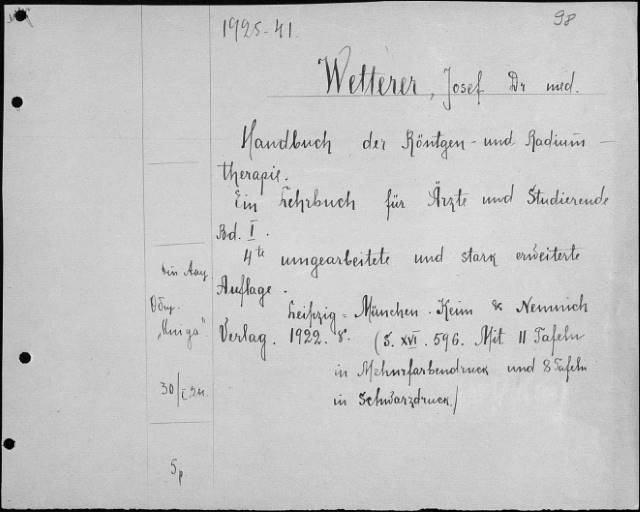 1925-41.
98
Wetterer, Josef Dr med.
Handbuch der Röntgen- und Radium-
therapie.
Ein Lehrbuch für Ärzte und Studierende
Bd. I.
4te umgearbeitete und stark erweiterte
Auflage.
Leipzig = München. Keim & Nemnich
Verlag. 1922. 8. (S. XVI. 596. Mit 11 Tafeln
in Mehrfarbendruck und 8 Tafeln
in Schwarzdruck)
"Kniga"
30/I 24.
5 p